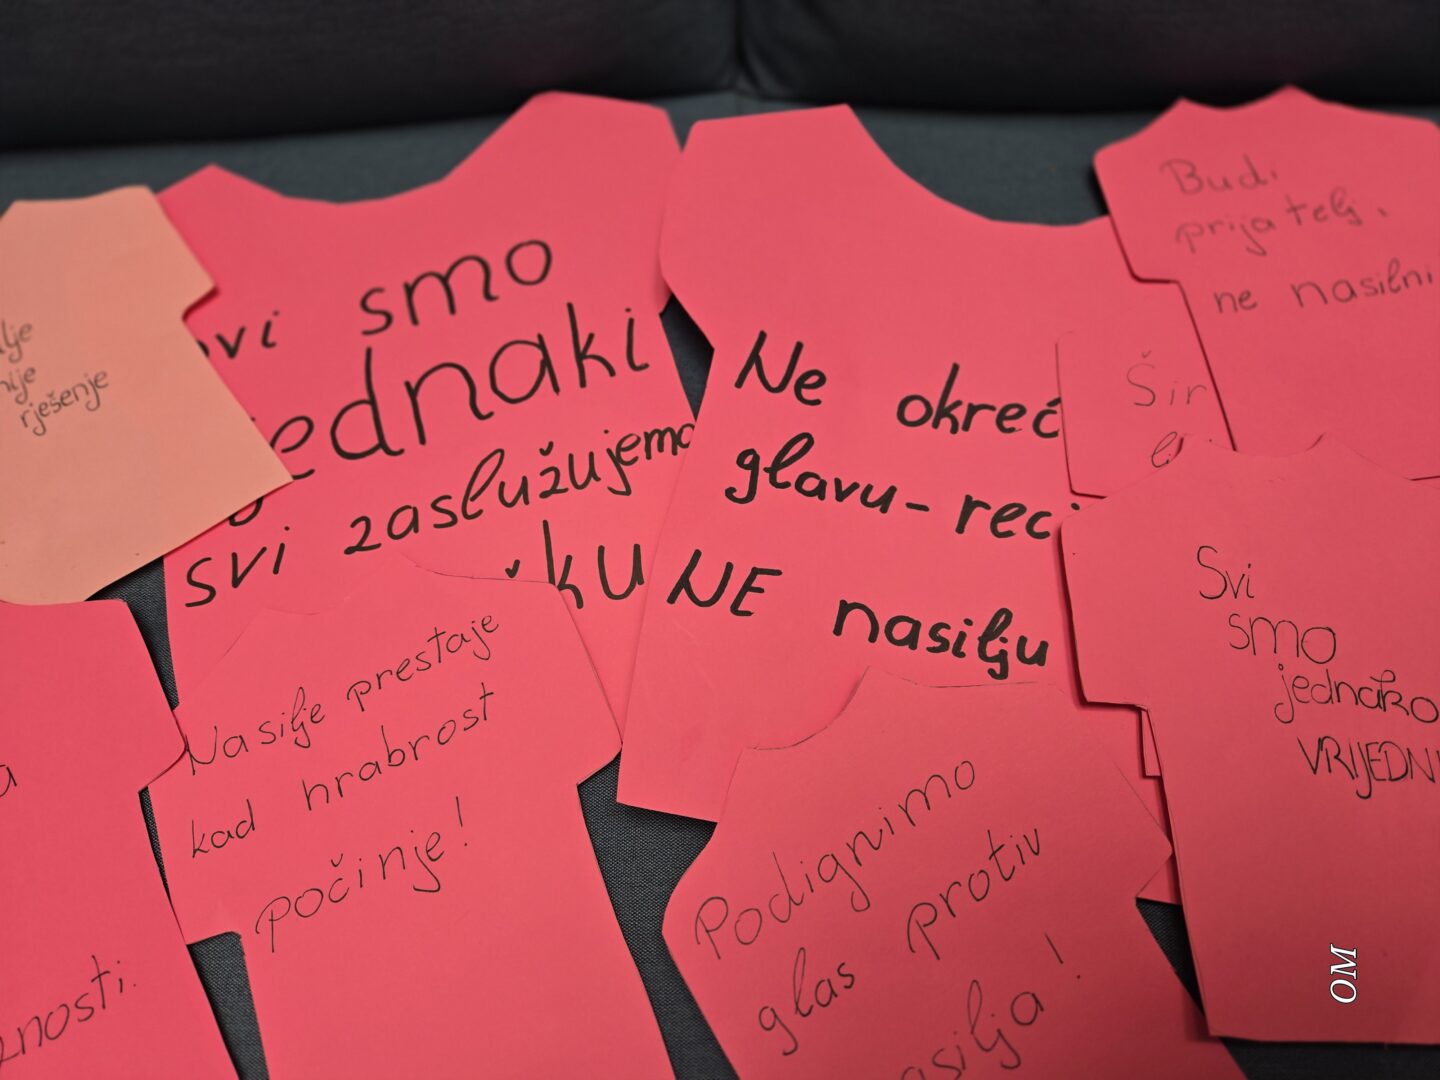 rješenje
svi smo
jednaki
svi zaslužujemo
Ne okreć
glavu - reci
NE nasilju
Budi
prijatelj,
ne nasilni
Šir
Svi
smo
jednako
VRIJEDNI
Nasilje prestaje
kad hrabrost
počinje!
Podignimo
glas protiv
nasilja!
OM